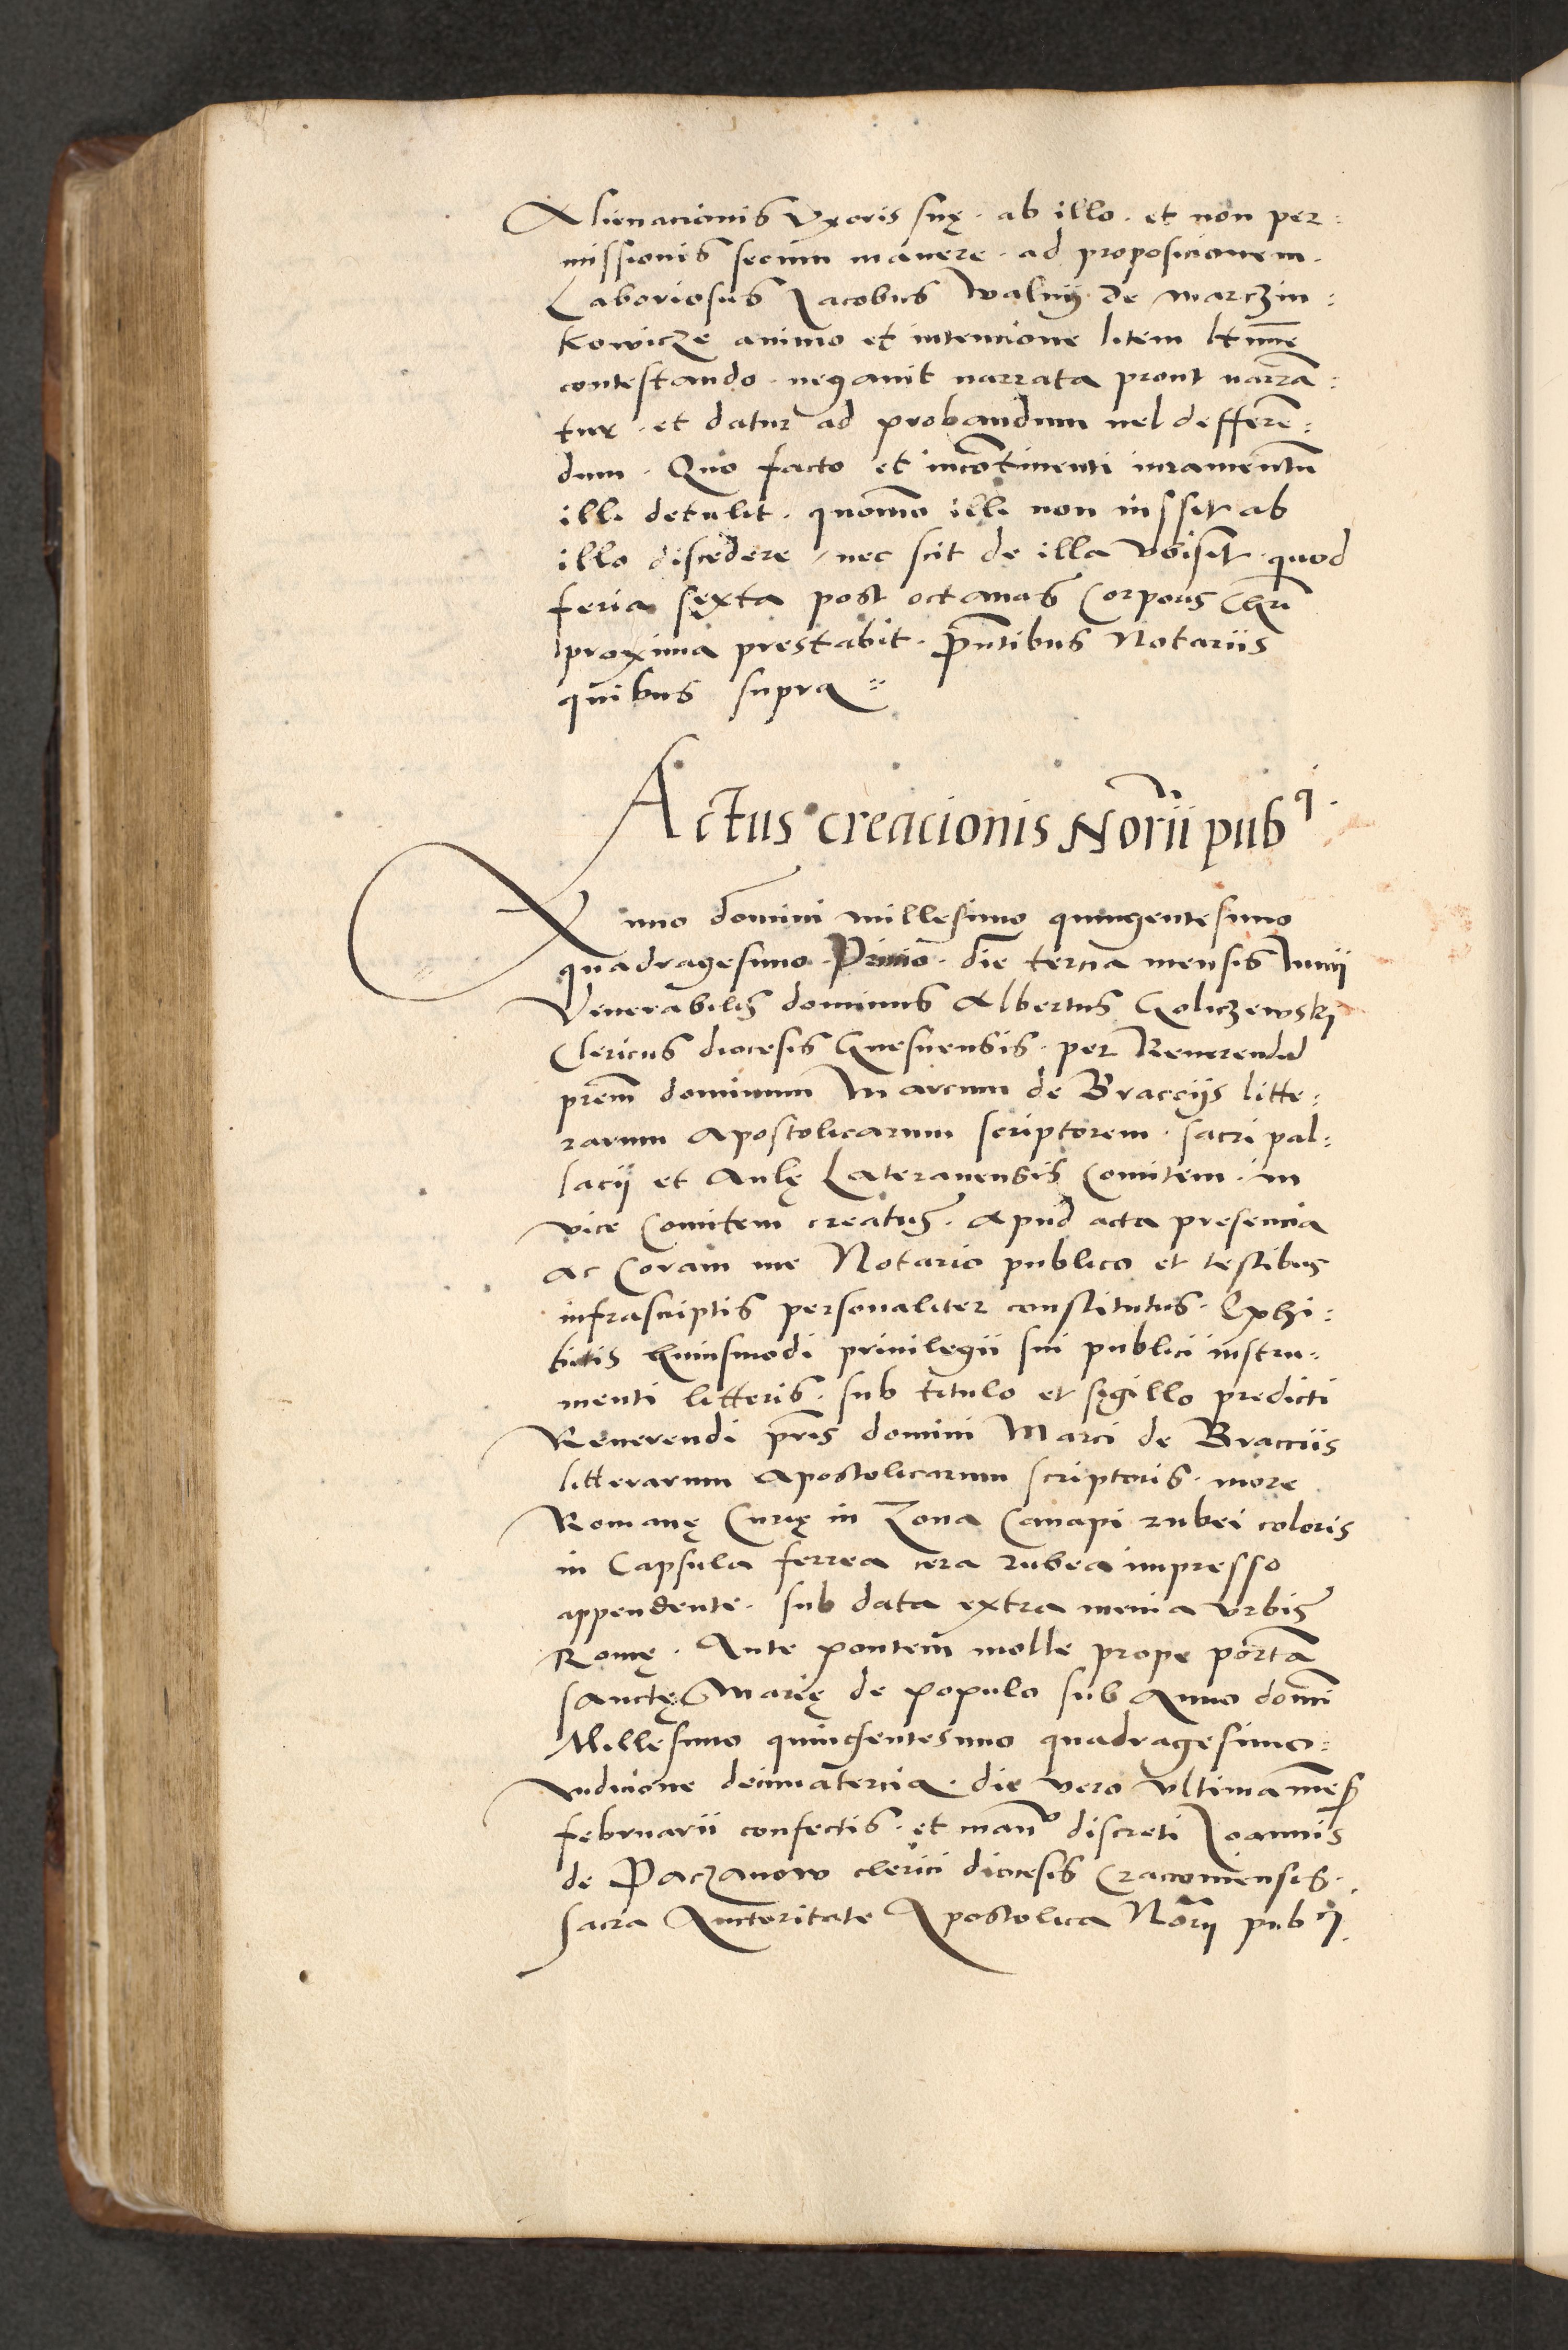 Alienacionis Vxoris suę · ab illo · et non per:
missionis secum manere · ad proposicionem ·
Laboriosus Jacobus Walnij de Marczin:
kowicze animo et intencione litem
contestando · negauit narrata prout narrā:
tur · et datur ad probandum uel defferē:
dum · Quo facto et incōtinenti iuramentū
illi detulit · quomō illi non iussit ab
illo discedere / nec scit de illa vbi sit · quod
feria sexta post octauas Corporis Chri
proxima prestabit · Pn̄tibus Notariis
quibus supra ::
Actus creacionis Norii pubci ·
Anno domini millesimo quingentesimo
quadragesimo · Primo · die tercia mensis Iunij
Venerabilis dominus Albertus Goliczewskj
Clericus diocesis Gnesnensis · per Reuerendū
prem̄ dominum Marcum de Bracciis litte:
rarum Apostolicarum scriptorem · sacri pal:
lacij et Aulę Lateranensis Comitem · in
vice Comitem creatus · Apud acta presencia
ac Coram me Notario publico et testibus
infrascriptis personaliter constitutus · Exhi:
bitis huiusmodi priuilegii siui publici instru:
menti litteris · sub titulo et sigillo predicti
Reuerendi pris̄ domini Marci de Bracciis
litterarum Apostolicarum scriptoris · more
Romanę Curię in Zona Canapi rubei coloris
in Capsula ferrea cera rubea impresso
appendente · sub data extra menia vrbis
Romę · Ante pontem molle prope portā
sanctę Marię de populo sub Anno domi
Millesimo quingentesimo quadragesimo :
Indicione decimatercia · die vero vltima mens
februarii confectis · et manu discreti Joannis
de Paczanow clerici diocesis Cracouiensis ·
sacra Auctoritate Apostolica Norij pubcj ·